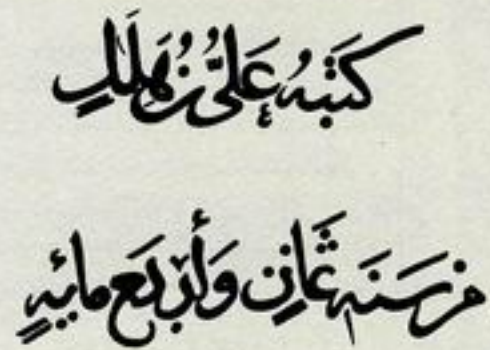 كَتَبَهُ عَلِىُّ بْنُ هِلَالٍ
مِن سَنَةِ ثَمَانٍ وَأَرْبَعِ مِائَةٍ